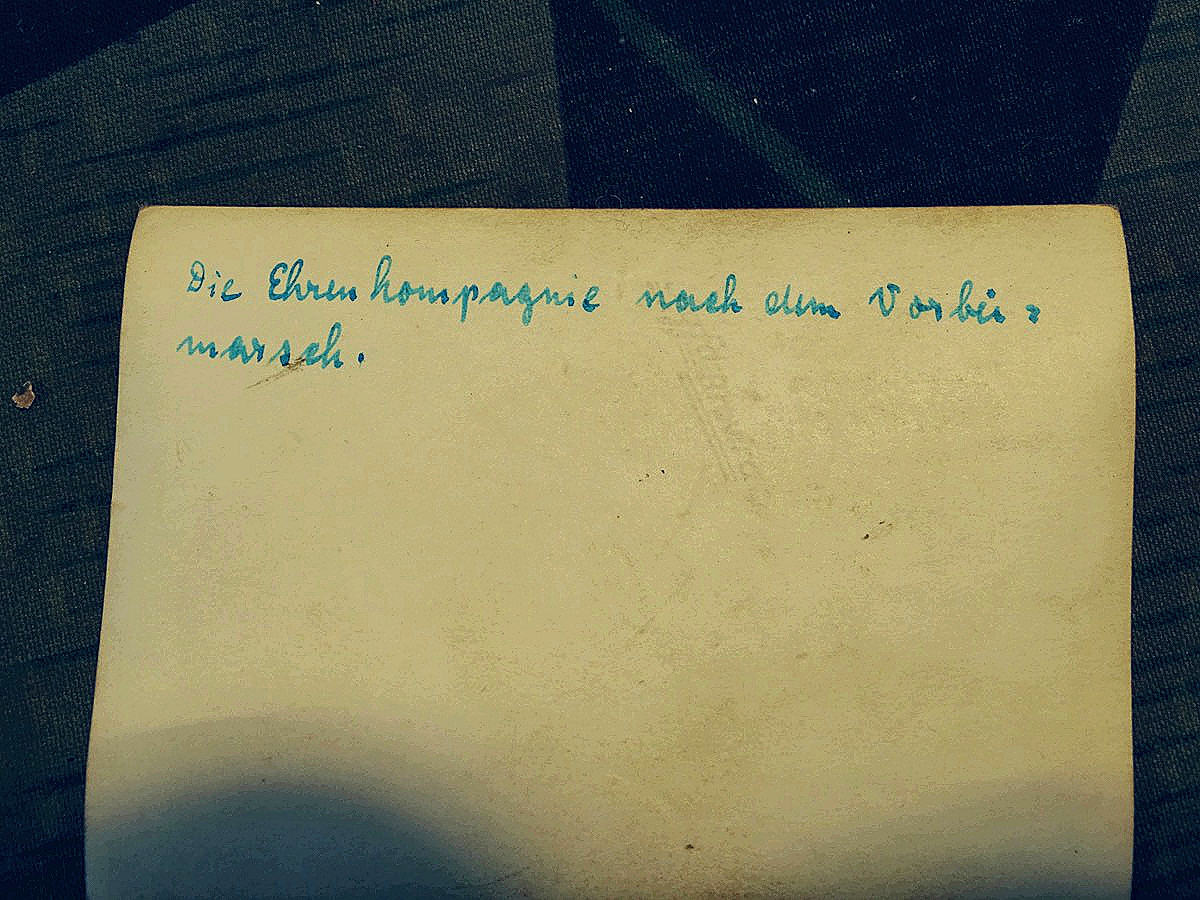 Die Ehrenkompagnie nach dem Vorbei=
marsch.